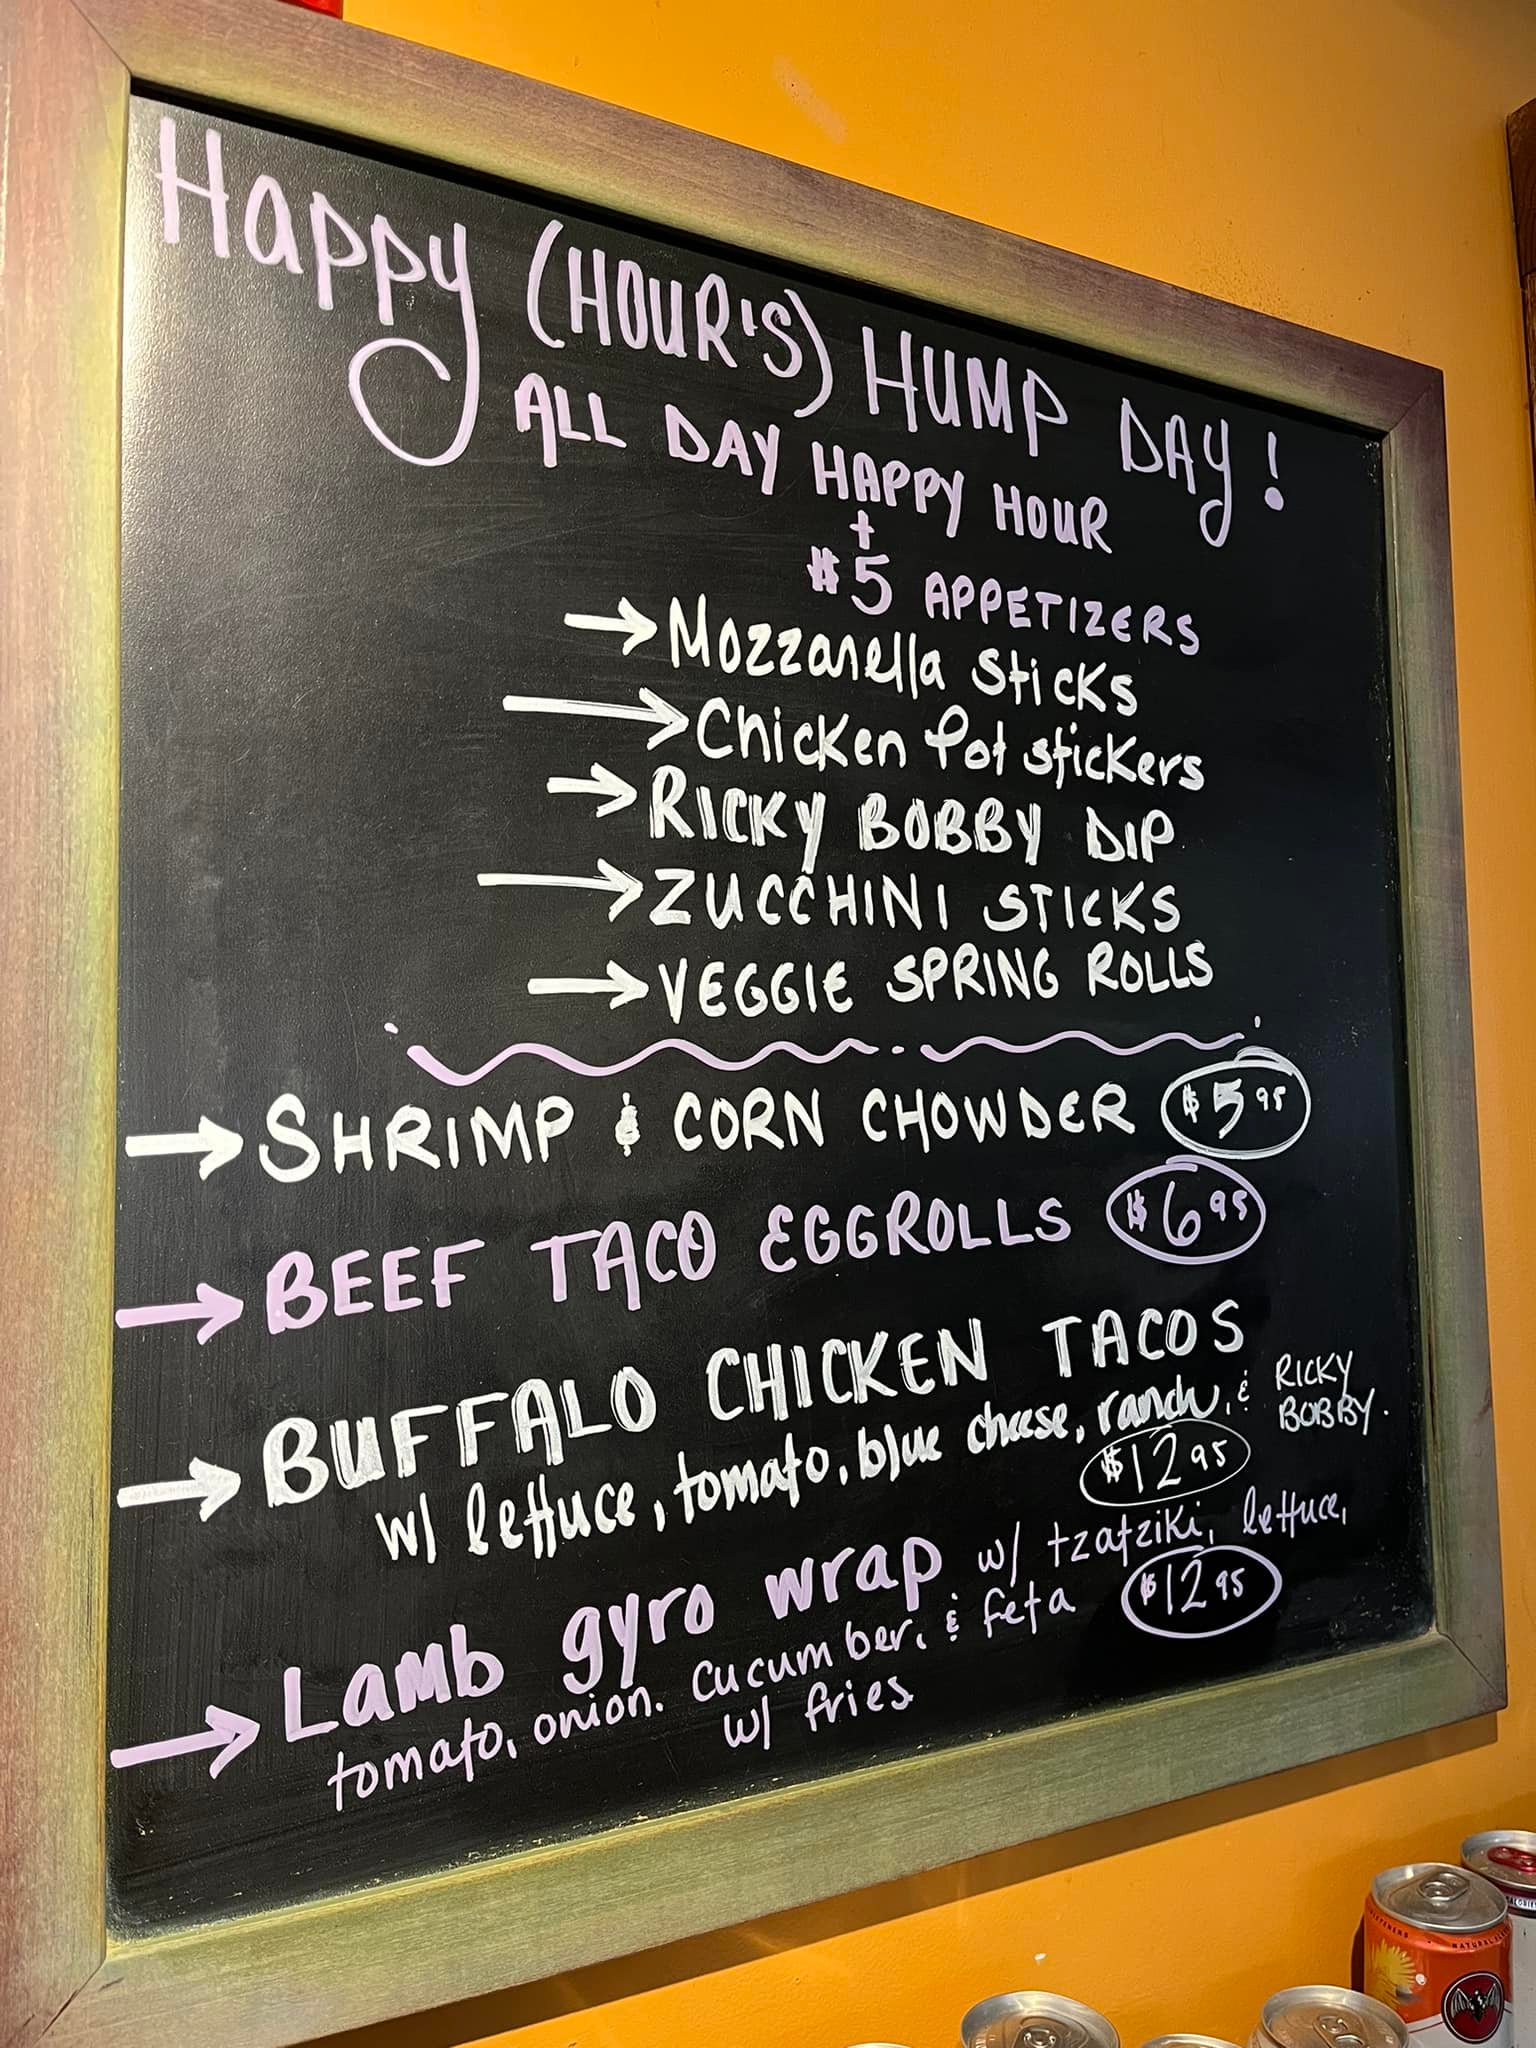 Happy (HOUR'S) HUMP DAY!
ALL DAY HAPPY HOUR
+
$5 APPETIZERS
→ Mozzarella Sticks
→ Chicken Pot stickers
→ RICKY BOBBY DIP
→ ZUCCHINI STICKS
→ VEGGIE SPRING ROLLS
→ SHRIMP & CORN CHOWDER $5.95
→ BEEF TACO EGGROLLS $6.95
→ BUFFALO CHICKEN TACOS
w/ lettuce, tomato, blue cheese, ranch, & RICKY BOBBY.
$12.95
→ Lamb gyro wrap w/ tzatziki, lettuce,
tomato, onion. cucumber, & feta $12.95
w/ fries